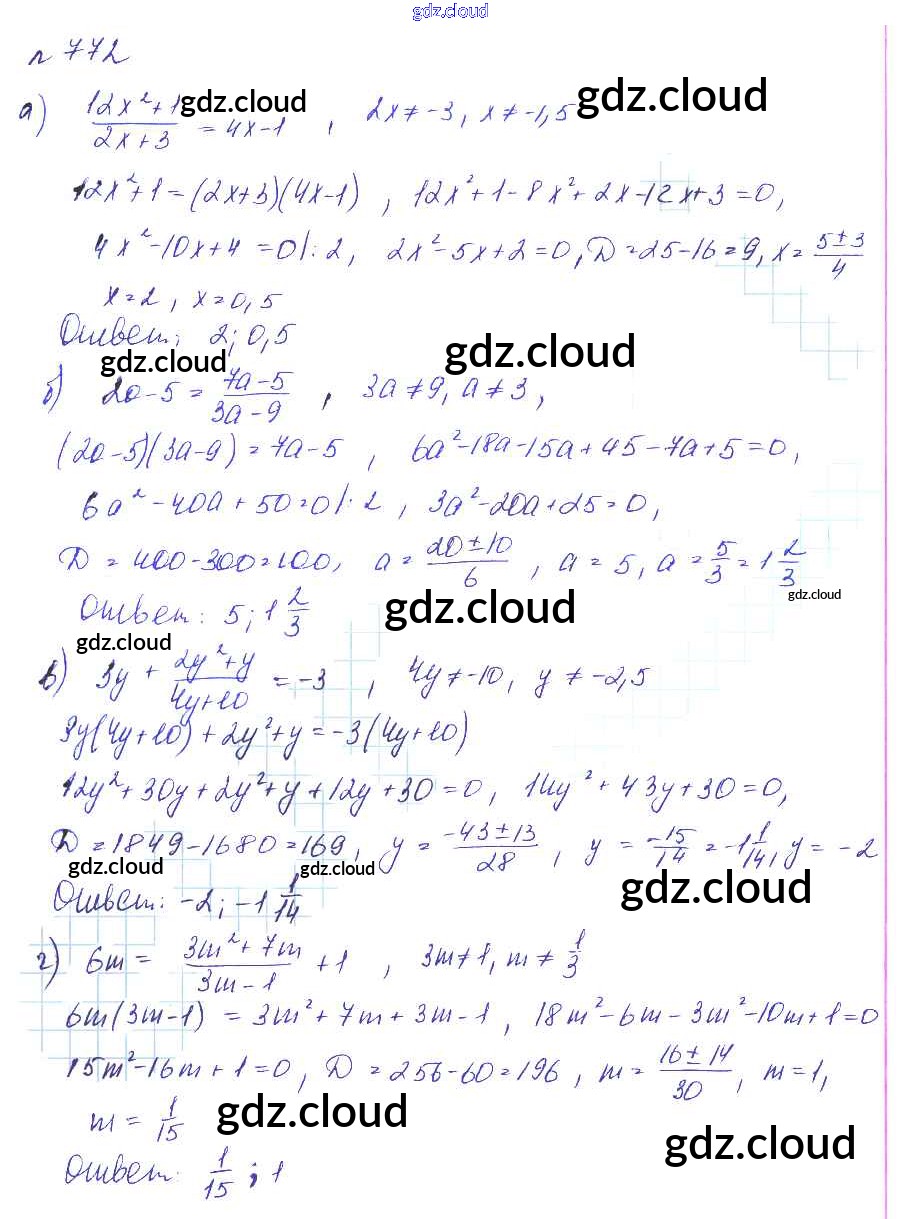 gdz.cloud
n 772
а) (12x²+1)/(2x+3) = 4x-1 , 2x≠-3, x≠-1,5
gdz.cloud gdz.cloud
12x²+1=(2x+3)(4x-1) , 12x²+1-8x²+2x-12x+3=0,
4x²-10x+4=0|:2, 2x²-5x+2=0, D=25-16=9, x=(5±3)/4
x=2, x=0,5
Ответ: 2; 0,5
gdz.cloud gdz.cloud
б) 2a-5=(7a-5)/(3a-9) , 3a≠9, a≠3,
(2a-5)(3a-9)=7a-5 , 6a²-18a-15a+45-7a+5=0,
6a²-40a+50=0|:2 , 3a²-20a+25=0,
D=400-300=100, a=(20±10)/6 , a=5, a=5/3=1 2/3
gdz.cloud gdz.cloud
Ответ: 5; 1 2/3
gdz.cloud
в) 3y+(2y²+y)/(4y+10)=-3 , 4y≠-10, y≠-2,5
3y(4y+10)+2y²+y=-3(4y+10)
12y²+30y+2y²+y+12y+30=0, 14y²+43y+30=0,
D=1849-1680=169, y=(-43±13)/28 , y=-15/14=-1 1/14, y=-2
gdz.cloud gdz.cloud gdz.cloud
Ответ: -2; -1 1/14
г) 6m=(3m²+7m)/(3m-1)+1 , 3m≠1, m≠1/3
6m(3m-1)=3m²+7m+3m-1, 18m²-6m-3m²-10m+1=0
15m²-16m+1=0, D=256-60=196, m=(16±14)/30, m=1,
m=1/15
gdz.cloud gdz.cloud
Ответ: 1/15; 1